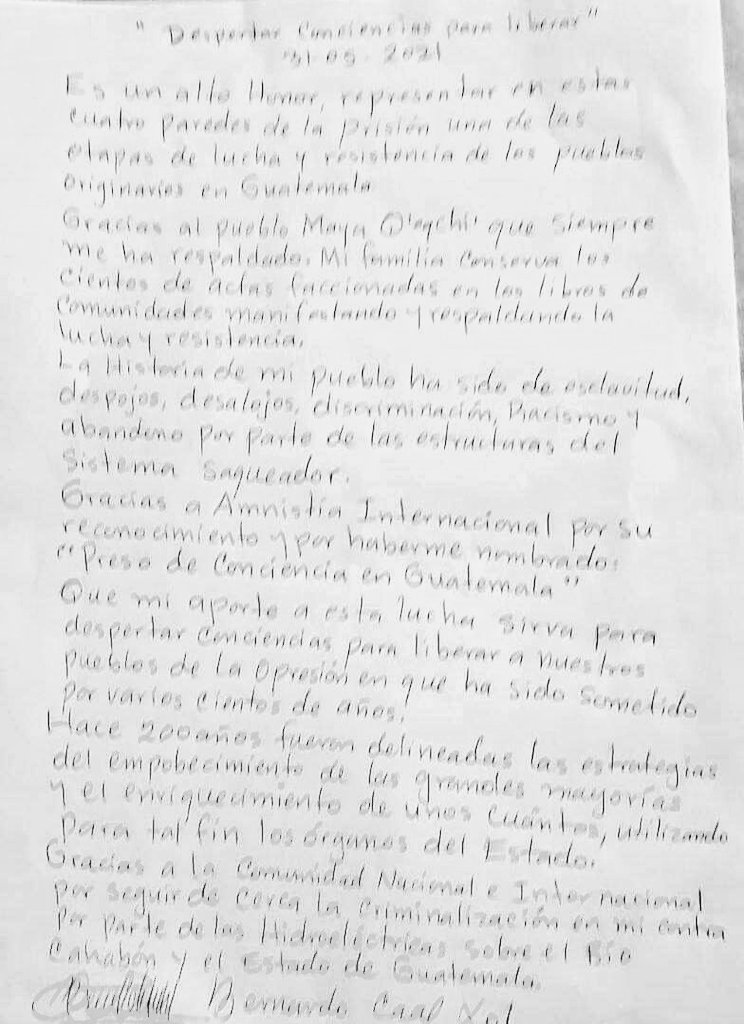 "Despertar Conciencias para liberar"
31-05-2021
Es un alto Honor, representar en estas
cuatro paredes de la prisión una de las
etapas de lucha y resistencia de los pueblos
originarios en Guatemala
Gracias al pueblo Maya Q'eqchi' que siempre
me ha respaldado. Mi familia conserva los
cientos de actas faccionadas en los libros de
Comunidades manifestando y respaldando la
lucha y resistencia.
La Historia de mi pueblo ha sido de esclavitud,
despojos, desalojos, discriminación, Racismo y
abandono por parte de las estructuras del
Sistema saqueador.
Gracias a Amnistía Internacional por su
reconocimiento y por haberme nombrado:
"Preso de Conciencia en Guatemala"
Que mi aporte a esta lucha sirva para
despertar Conciencias para liberar a nuestros
pueblos de la Opresión en que ha sido Sometido
por varios cientos de años!
Hace 200 años fueron delineadas las estrategias
del empobecimiento de las grandes mayorías
y el enriquecimiento de unos Cuántos, utilizando
para tal fin los órganos del Estado.
Gracias a la Comunidad Nacional e Internacional
por seguir de cerca la Criminalización en mi contra
por parte de las Hidroeléctricas sobre el Río
Cahabón y el Estado de Guatemala.
Bernardo Caal Xol